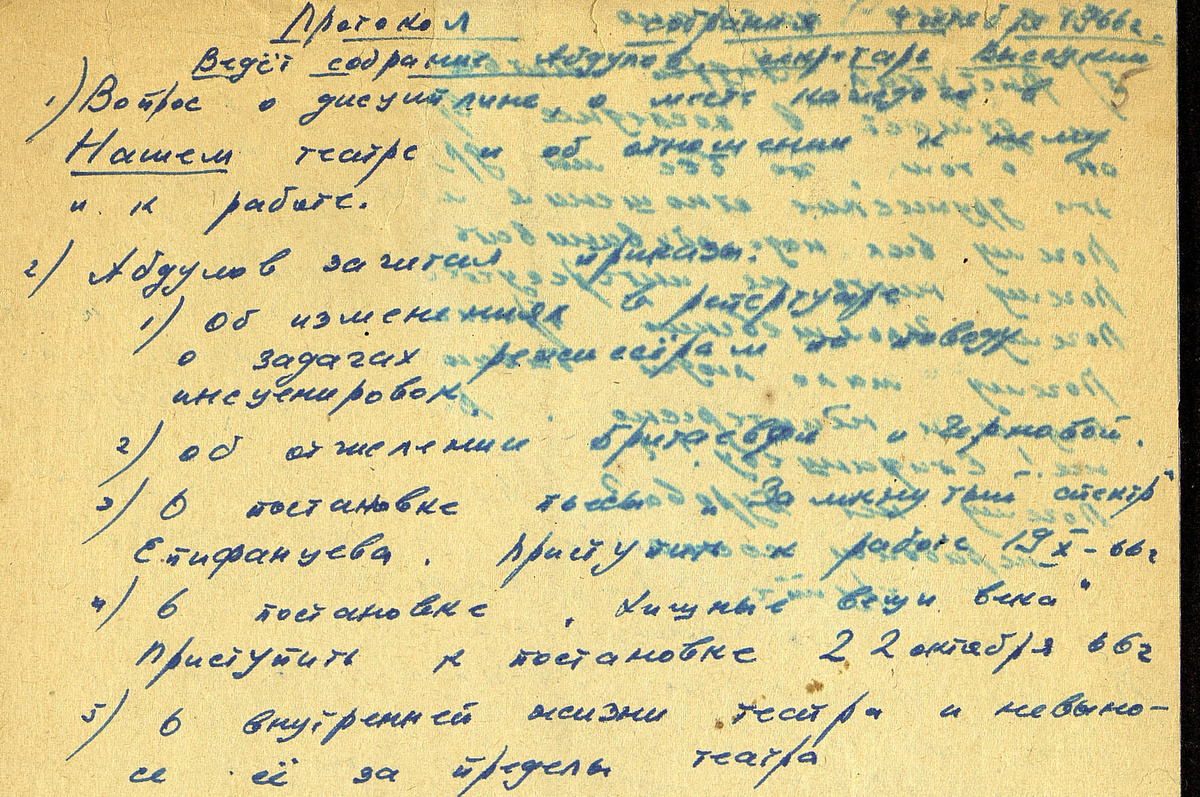 Протокол собрания 4 октября 1966г.
Ведёт собрание Абдулов, секретарь
1) Вопрос о дисциплине, о месте каждого в
Нашем театре и об отношении к нему
и к работе.
2) Абдулов зачитал приказы.
1) Об изменениях в репертуаре
о задачах режиссёрам по поводу
инсценировок.
2) об отчислении и Зерновой.
3) О постановке пьесы „Замкнутый спектр"
Епифанцева. Приступить к работе 19 X-66г
4) О постановке „Хищные вещи века"
Приступить к постановке 22 октября 66г
5) О внутренней жизни театра и невыно-
се её за пределы театра